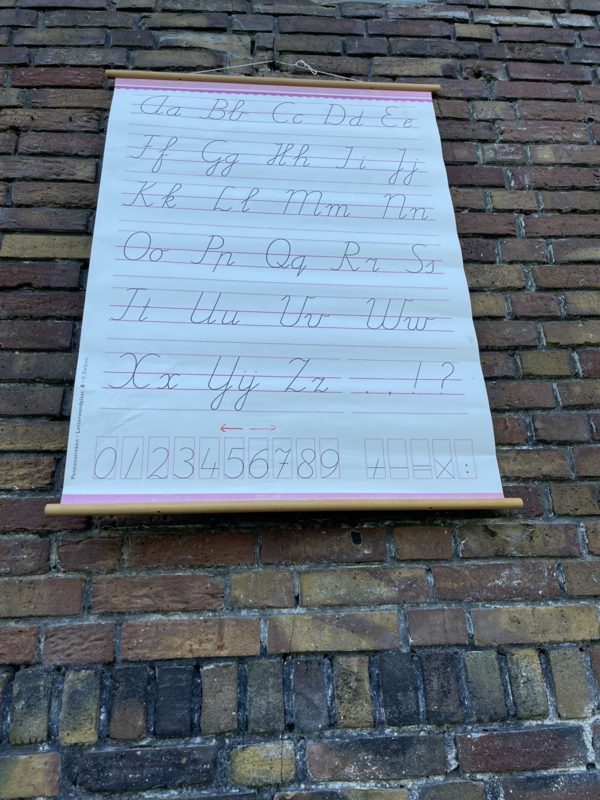 Aa Bb Cc Dd Ee
Ff Gg Hh Ii Jj
Kk Ll Mm Nn
Oo Pp Qq Rr Ss
Tt Uu Vv Ww
Xx IJij Zz . , ! ?
0 1 2 3 4 5 6 7 8 9 + - = x :
Pennenstreken - Letterwandplaat